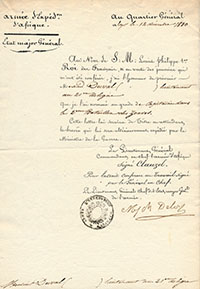 Armée d'Expéd.on
d'Afrique.
Au Quartier Général
Etat major Général.
Au Nom de S. M. Louis Philippe 1er
Roi des Français, et en vertu des pouvoirs qui
m'ont été confiés, j'ai l'honneur de prévenir
Monsieur Duval lieutenant
au 21e de ligne
que je l'ai nommé au grade de Capitaine dans
le 2me Bataillon de Zouaves.
Cette lettre lui tiendra de Titre
de brevet qui lui sera ultérieurement expédié par le
Ministre de la Guerre.
Le Lieutenant Général
Commandant en chef l'armée d'Afrique
Signé Clauzel
Pour
par le Général en Chef
Le Lieutenant Général chef de l'état major Gal
de l'armée.
Monsieur Duval, lieutenant au 21e de ligne